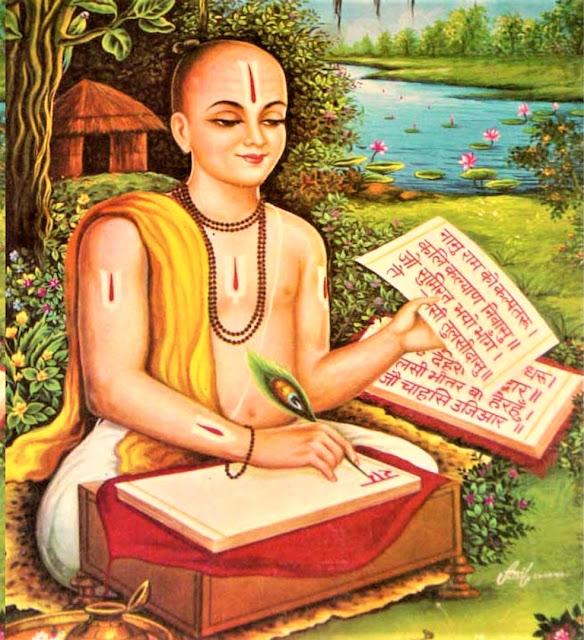 नामु राम को कल्पतरू ।
कलि कल्याण निवासु ॥
जो सुमिरत भयो भाँग ।
तुलसीदासु ॥
धरू ।
द्वार ॥
लसी भीतर बा हेरहुँ ।
जौ चाहसि उजिआर ॥
राम